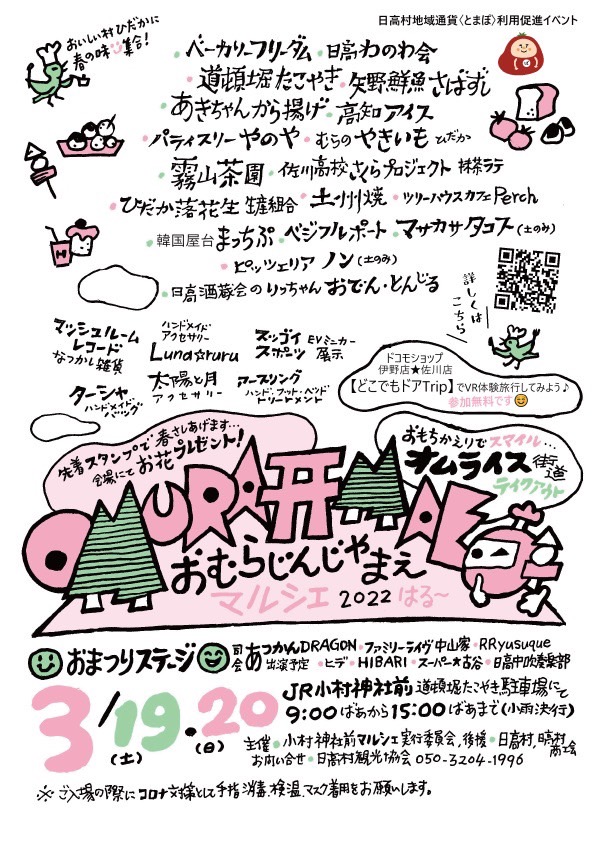 日高村地域通貨〈とまぽ〉利用促進イベント
おいしい村ひだかに
春の味集合!
・ベーカリーフリーダム・日高わのわ会
・道頓堀たこやき・矢野鮮魚さばずし
・あきちゃんから揚げ・高知アイス
・パティスリーやのや・むらのやきいもひだか
・霧山茶園・佐川高校さくらプロジェクト 抹茶ラテ
・ひだか落花生生産組合・土州焼・ツリーハウスカフェPerch
・韓国屋台まっちぷ・ベジフルポート・マサカサタコス(土のみ)
・ピッツェリア ノン(土のみ)
・日高酒蔵会のりっちゃんおでん・とんじる
詳しくは
こちら
マッシュルーム
レコード
なつかし雑貨
ハンドメイド
アクセサリー
Luna☆ruru
スッゴイ
スポーツ
EVミニカー
展示
ターシャ
ハンドメイドバッグ
太陽と月
アクセサリー
アースソング
ハンド・フット・ヘッド
トリートメント
ドコモショップ
伊野店★佐川店
【どこでもドアTrip】でVR体験旅行してみよう♪
参加無料です
先着スタンプで春さしあげます…
会場にてお花プレゼント!
おもちかえりでスマイル…
オムライス街道
テイクアウト
OMURAJINJAMAE
おむらじんじゃまえ
マルシェ 2022 はる〜
おまつりステージ
司会 あつかんDRAGON・ファミリーライヴ中山家・RRyusuque
出演予定・ヒデ・HIBARI・スーパー★古谷・日高中吹奏楽部
3/19(土).20(日)
JR小村神社前 道頓堀たこやき駐車場にて
9:00ばあから15:00ばあまで(小雨決行)
主催・小村神社前マルシェ実行委員会、後援・日高村、日高村商工会
お問い合せ・日高村観光協会 050-3204-1996
※ご入場の際にコロナ対策として手指消毒、検温、マスク着用をお願いします。